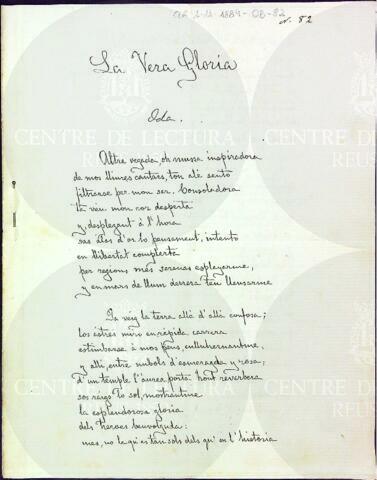 N. 82
La Vera Gloria
Oda.
Altre vegada, oh mussa inspiradora
de mos lliures cantars, ton alé sento
filtrarse per mon ser. Consoladora
ta veu mon cor desperta
y, desplegant á l'hora
sas alas d'or lo pensament, intento
en llibertat complerta
per regions més serenas esplayarme,
y en mars de llum derrera teu llensarme
Ja veig la terra allá d'allá confosa;
los astres miro en rápida carrera
estimbarse á mos peus, enlluhernantme,
y allí, entre nubols d'esmeragda y rosa,
d'un temple l'aurea porta: hont reverbera
sos raigs lo sol, mostrantme
la esplendorosa gloria
dels héroes benvolguda:
mes, no la qu'es tan sols dels qu'en l'historia
CENTRE DE LECTURA
REUS